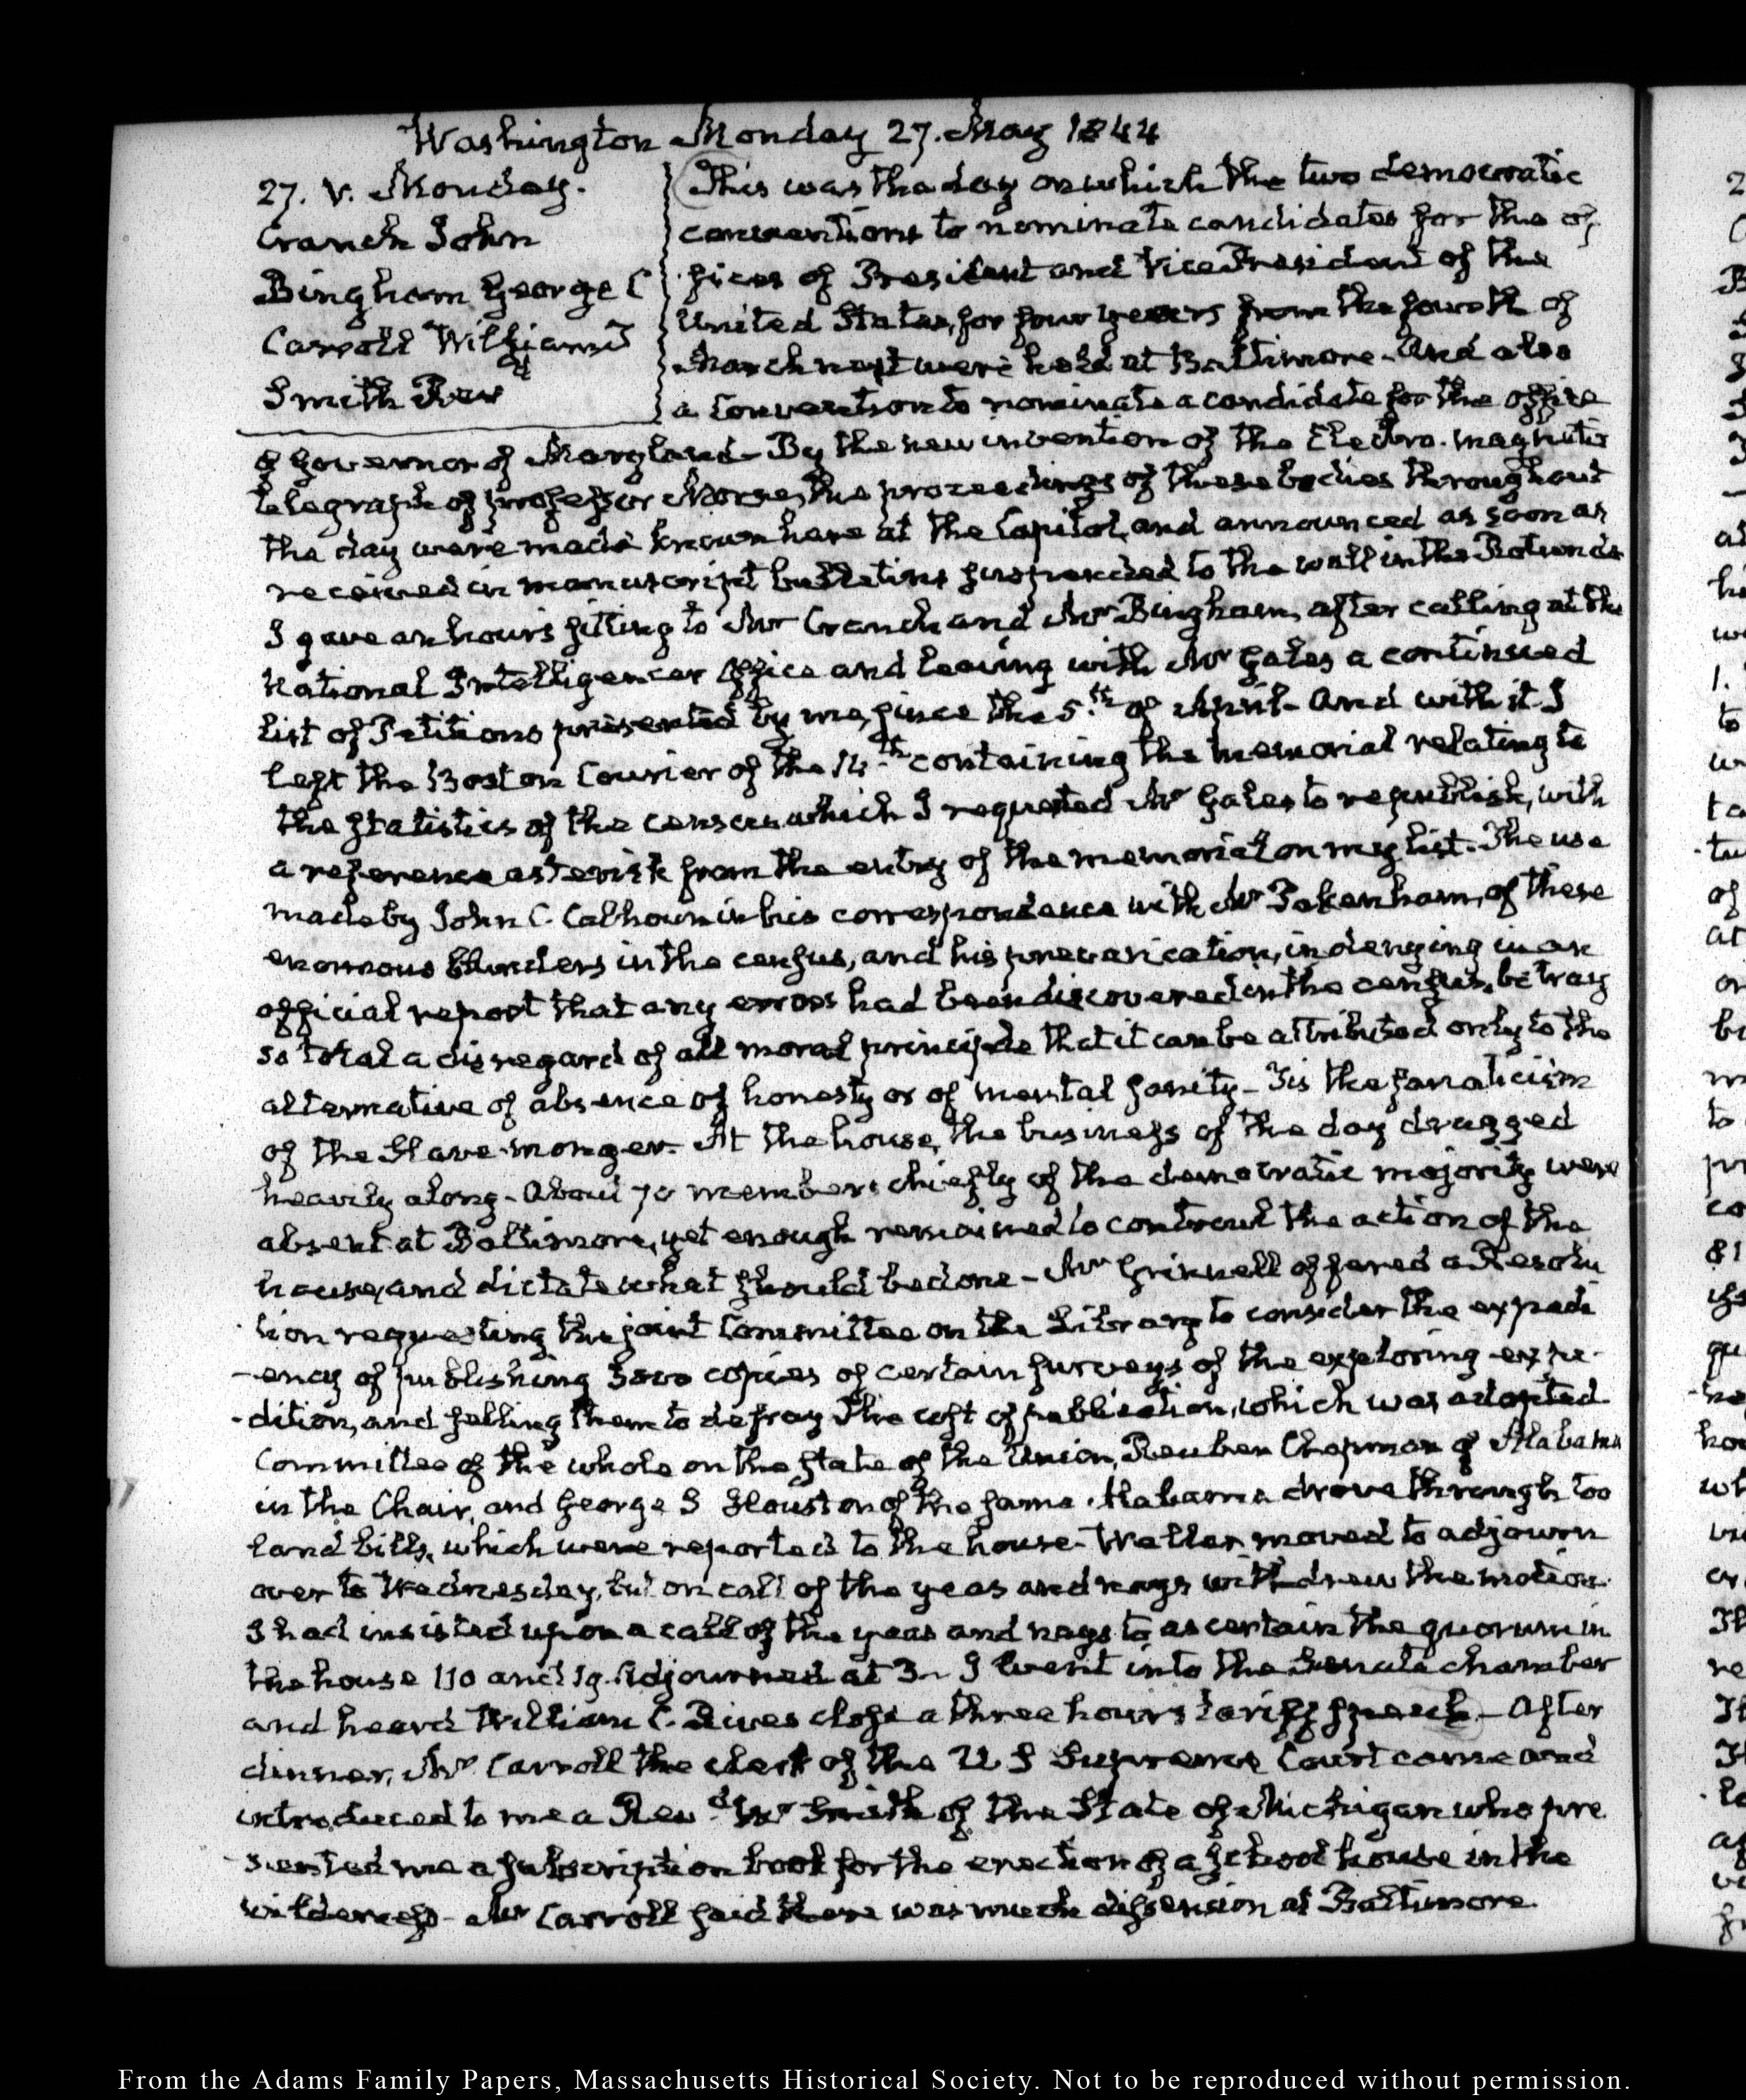 Washington Monday 27. May 1844
27. V. Monday.
Cranch John
Bingham George C
Carroll William T
Smith Revd
This was the day on which the two democratic
conventions to nominate candidates for the of
fices of President and Vice President of the
United States, for four years from the fourth of
March next were held at Baltimore. And also
a Convention to nominate a candidate for the office
of Governor of Maryland. By the new invention of the Electro-magnetic
telegraph of professor Morse, the proceedings of these bodies throughout
the day were made known here at the Capitol, and announced as soon as
received in manuscript bulletins suspended to the wall in the Rotunda
I gave an hours sitting to Mr Cranch and Mr Bingham, after calling at the
National Intelligencer Office and leaving with Mr Gales a continued
list of Petitions presented by me, since the 5th of April- And with it I
left the Boston Courier of the 14th containing the memorial relating to
the statistics of the census which I requested Mr Gales to republish, with
a reference asterisk from the entry of the memorial on my list. The use
made by John C. Calhoun in his correspondence with Mr Pakenham, of these
enormous blunders in the census, and his prevarication, in denying in an
official report that any errors had been discovered in the census, betray
so total a disregard of all moral principle that it can be attributed only to the
alternative of absence of honesty or of mental sanity- Tis the fanaticism
of the Slave-monger. At the house, the business of the day dragged
heavily along- About 70 members chiefly of the democratic majority were
absent at Baltimore, yet enough remained to controul the action of the
house, and dictate what should be done- Mr Grinnell offered a Resolu
tion requesting the joint Committee on the Library to consider the expedi
-ency of publishing copies of certain surveys of the exploring expe-
-dition, and selling them to defray the cost of publication, which was adopted.
Committee of the whole on the state of the Union, Reuben Chapman of Alabama
in the Chair, and George S Houston of the same Alabama drove through too
land bills, which were reported to the house. Weller moved to adjourn
over to Wednesday, but on call of the yeas and nays withdrew the motion.
I had insisted upon a call of the yeas and nays to ascertain the quorum in
the house 110 and 19. Adjourned at 3- I went into the Senate chamber
and heard William C. Rives close a three hours tariff speech- After
dinner, Mr Carroll the clerk of the U S Supreme Court came and
introduced to me a Revd Mr Smith of the State of Michigan who pre
-sented me a subscription book for the erection of a school house in the
wilderness- Mr Carroll said there was much dissension at Baltimore.
From the Adams Family Papers, Massachusetts Historical Society. Not to be reproduced without permission.